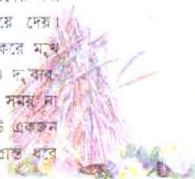 য়ে দেয়।
করে মুখ
দু'বার
সময় না
একজন
প্রান্ত ধরে